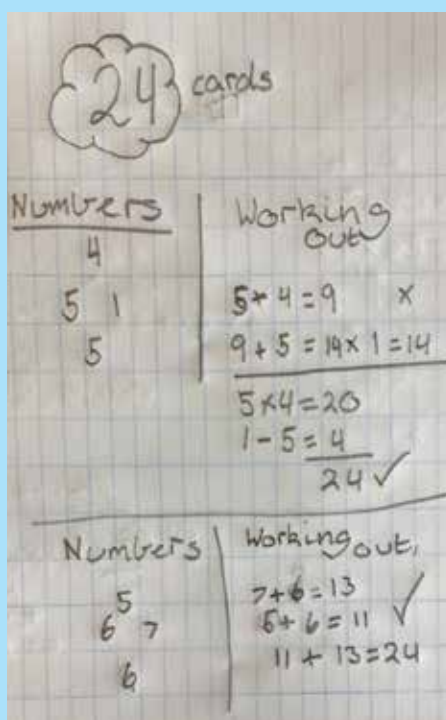 24 cards
Numbers
4
5 1
5
Working
out
5+4=9 x
9+5=14x1=14
5x4=20
1-5=4
24 ✓
Numbers
5
6 7
6
Working out,
7+6=13
5+6=11 ✓
11+13=24